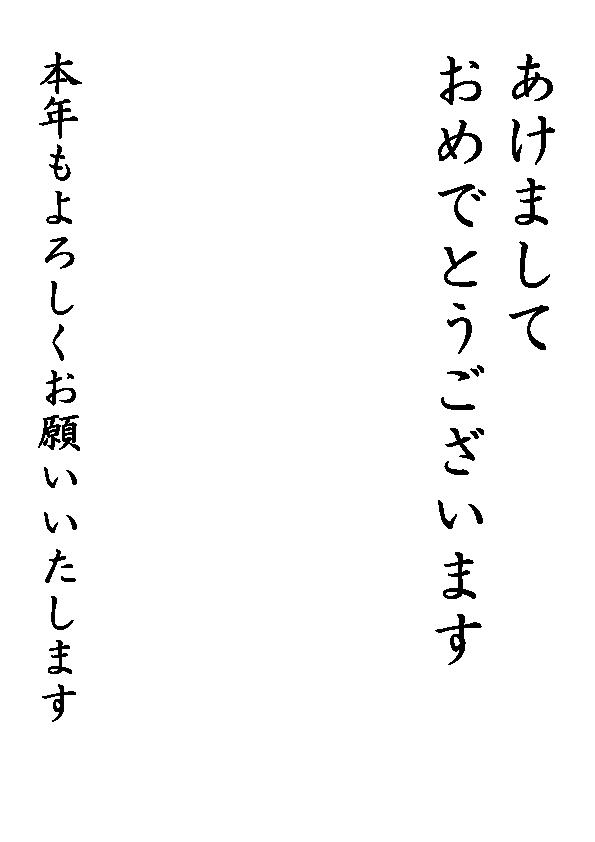 あけまして
おめでとうございます
本年もよろしくお願いいたします